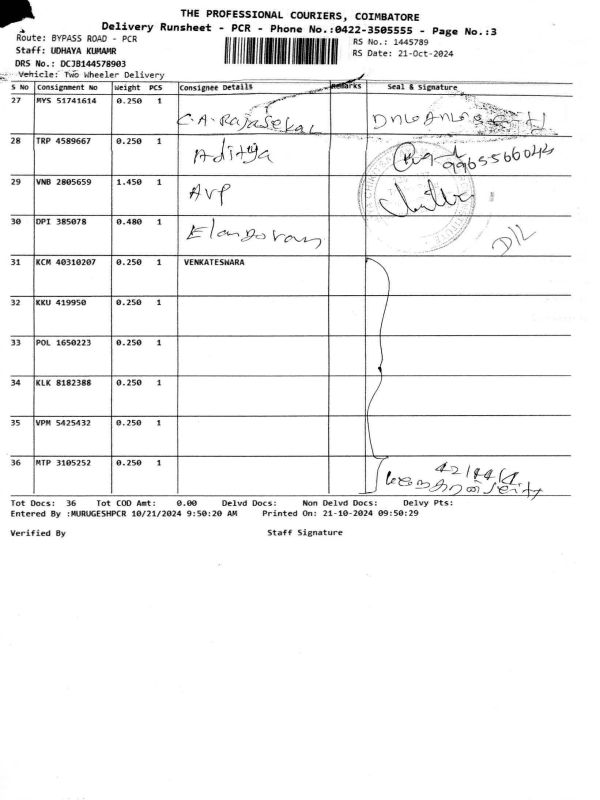 THE PROFESSIONAL COURIERS, COIMBATORE
Delivery Runsheet - PCR - Phone No.:0422-3505555 - Page No.:3
Route: BYPASS ROAD - PCR RS No.: 1445789
Staff: UDHAYA KUMAMR RS Date: 21-Oct-2024
DRS No.: DCJB144578903
Vehicle: Two Wheeler Delivery
S No Consignment No Weight PCS Consignee Details Remarks Seal & Signature
27 MYS 51741614 0.250 1 C.A. Rajasekar
28 TRP 4589667 0.250 1 Aditya
29 VNB 2805659 1.450 1 AVP
30 DPI 385078 0.480 1
31 KCM 40310207 0.250 1 VENKATESWARA
32 KKU 419950 0.250 1
33 POL 1650223 0.250 1
34 KLK 8182388 0.250 1
35 VPM 5425432 0.250 1
36 MTP 3105252 0.250 1
Tot Docs: 36 Tot COD Amt: 0.00 Delvd Docs: Non Delvd Docs: Delvy Pts:
Entered By :MURUGESHPCR 10/21/2024 9:50:20 AM Printed On: 21-10-2024 09:50:29
Verified By Staff Signature